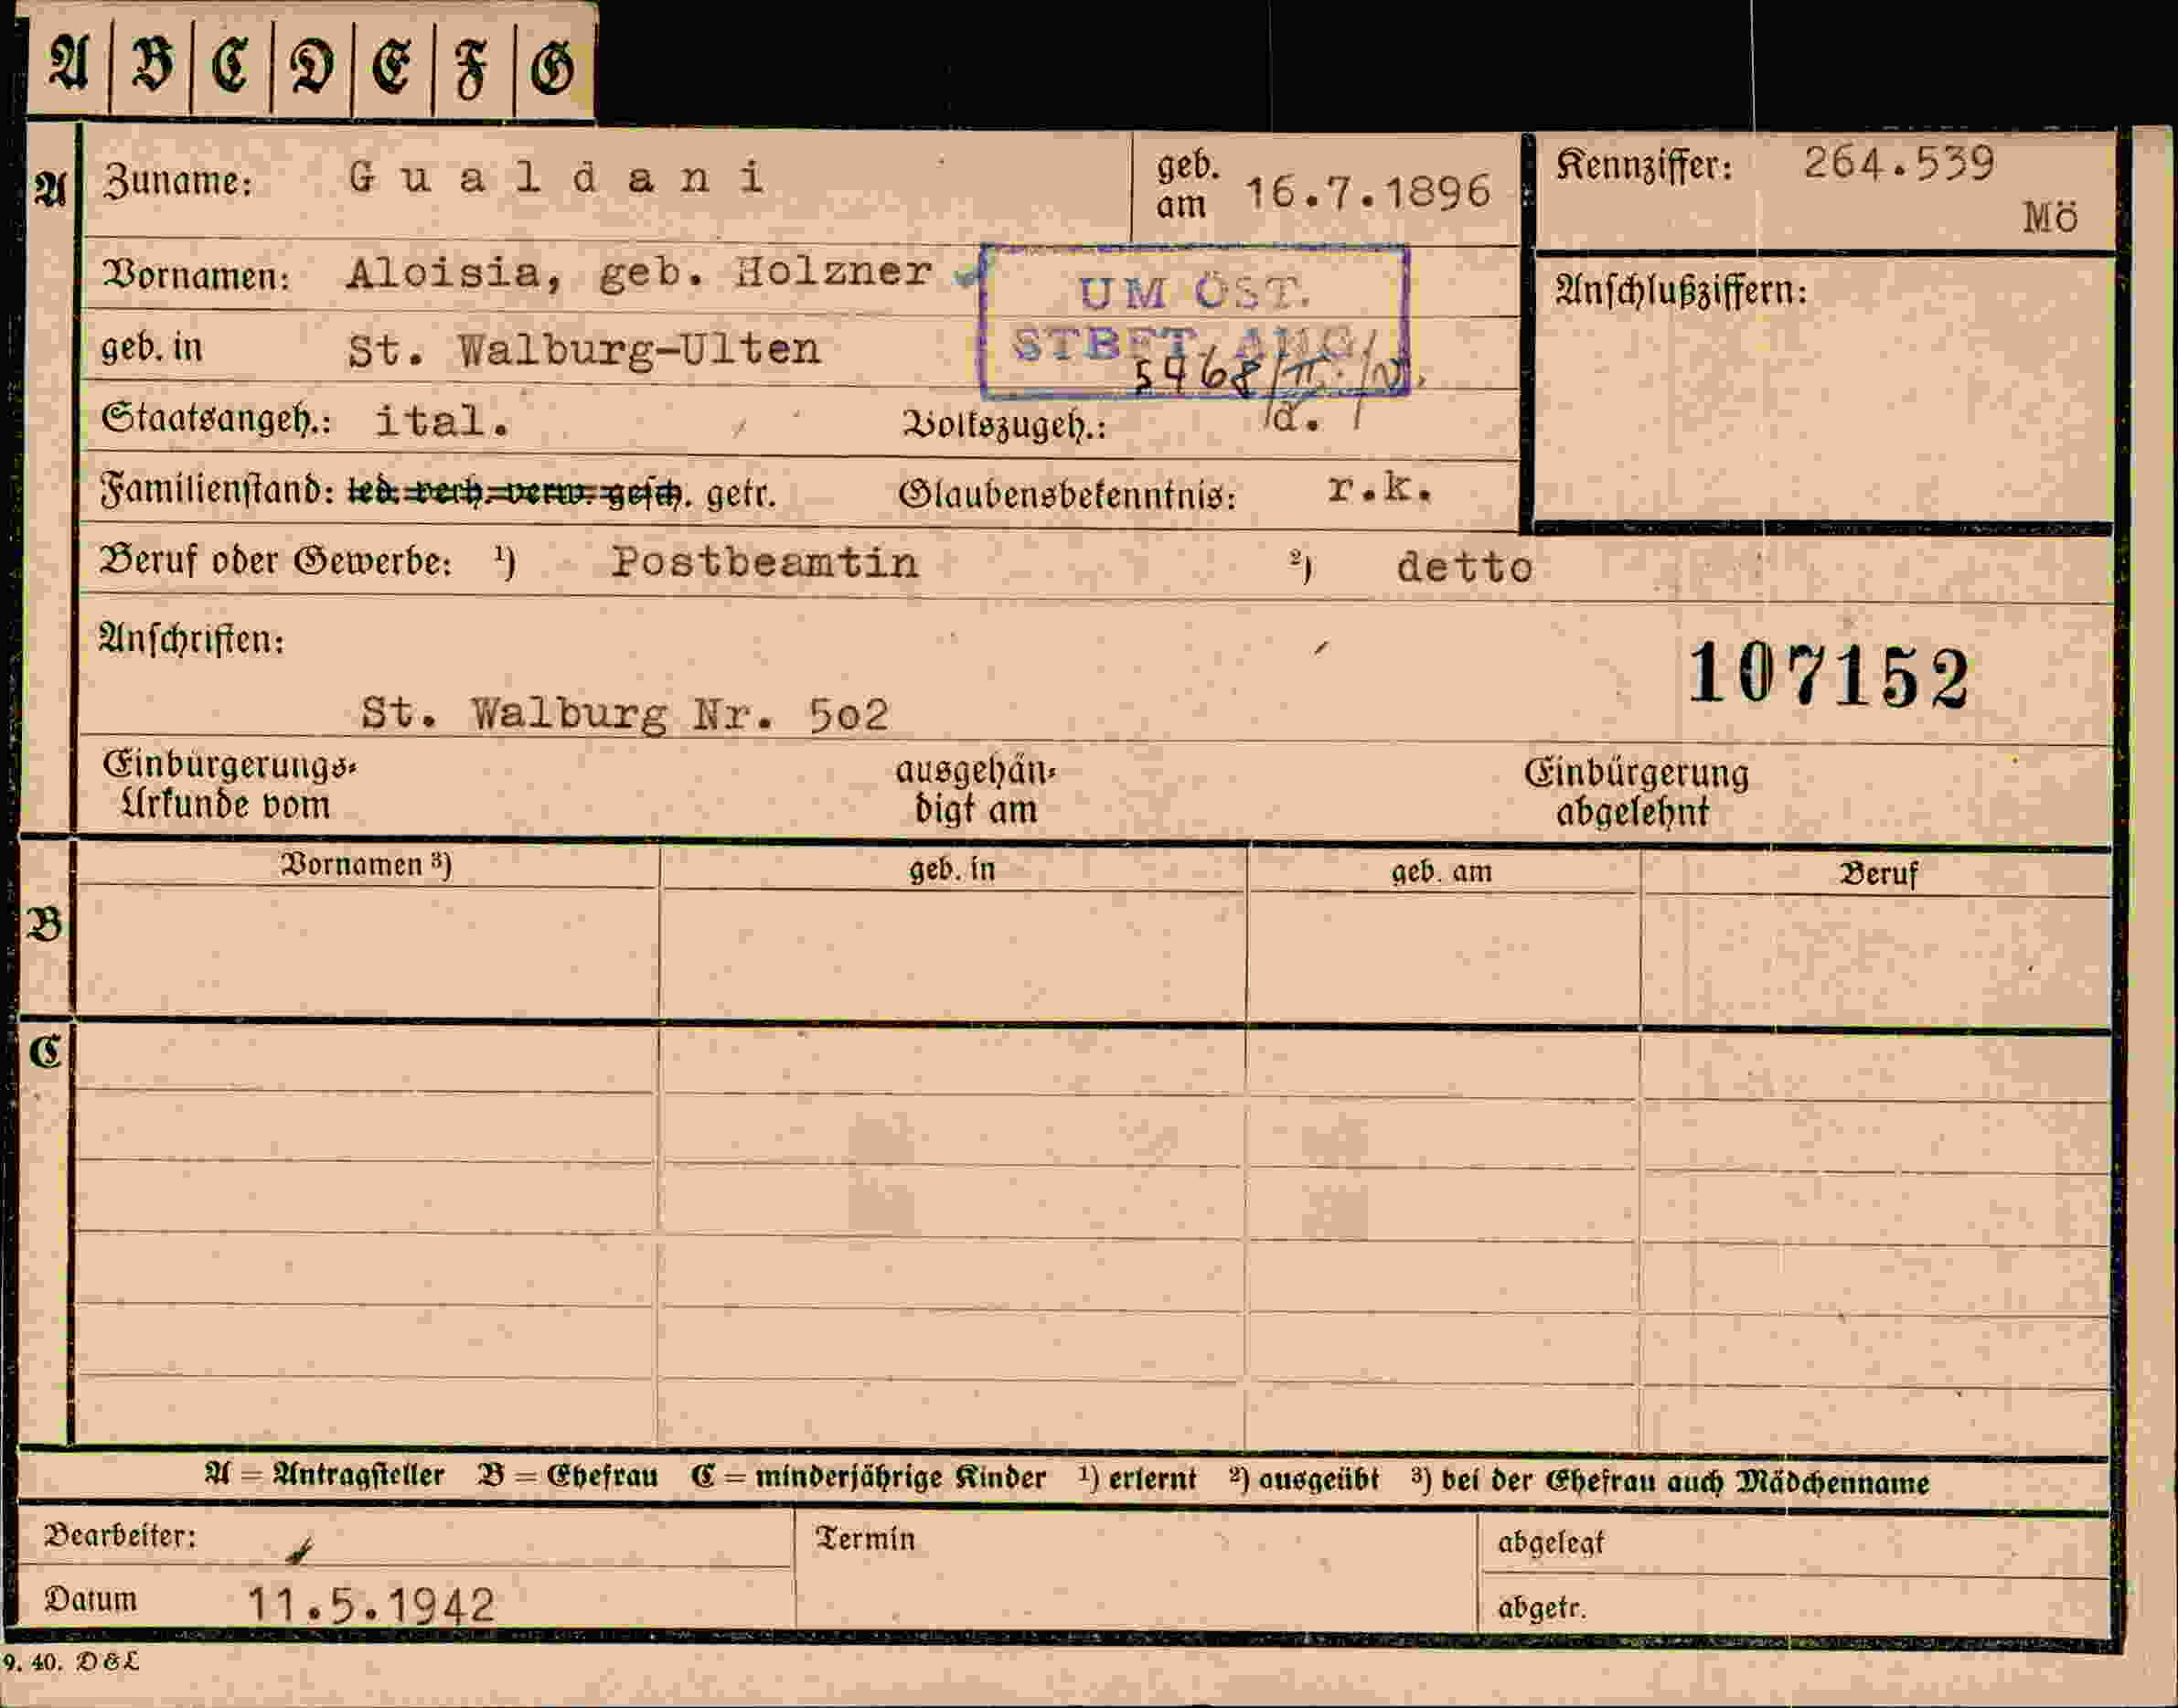 A B C D E F G
A Zuname: Gualdani geb. am 16.7.1896 Kennziffer: 264.539
Mö
Vornamen: Aloisia, geb. Holzner Anschlußziffern:
UM ÖST.
geb. in St. Walburg-Ulten
STBFT. ANG.
5468/II.
Staatsangeh.: ital. Volkszugeh.: d.
Familienstand: led. verh. verw. gesch. getr. Glaubensbekenntnis: r.k.
Beruf oder Gewerbe: ¹) Postbeamtin ²) detto
Anschriften:
107152
St. Walburg Nr. 502
Einbürgerungs- ausgehän- Einbürgerung
Urkunde vom digt am abgelehnt
Vornamen ³) geb. in geb. am Beruf
B
C
A = Antragsteller B = Ehefrau C = minderjährige Kinder ¹) erlernt ²) ausgeübt ³) bei der Ehefrau auch Mädchenname
Bearbeiter: Termin abgelegt
Datum 11.5.1942 abgetr.
9. 40. D&L